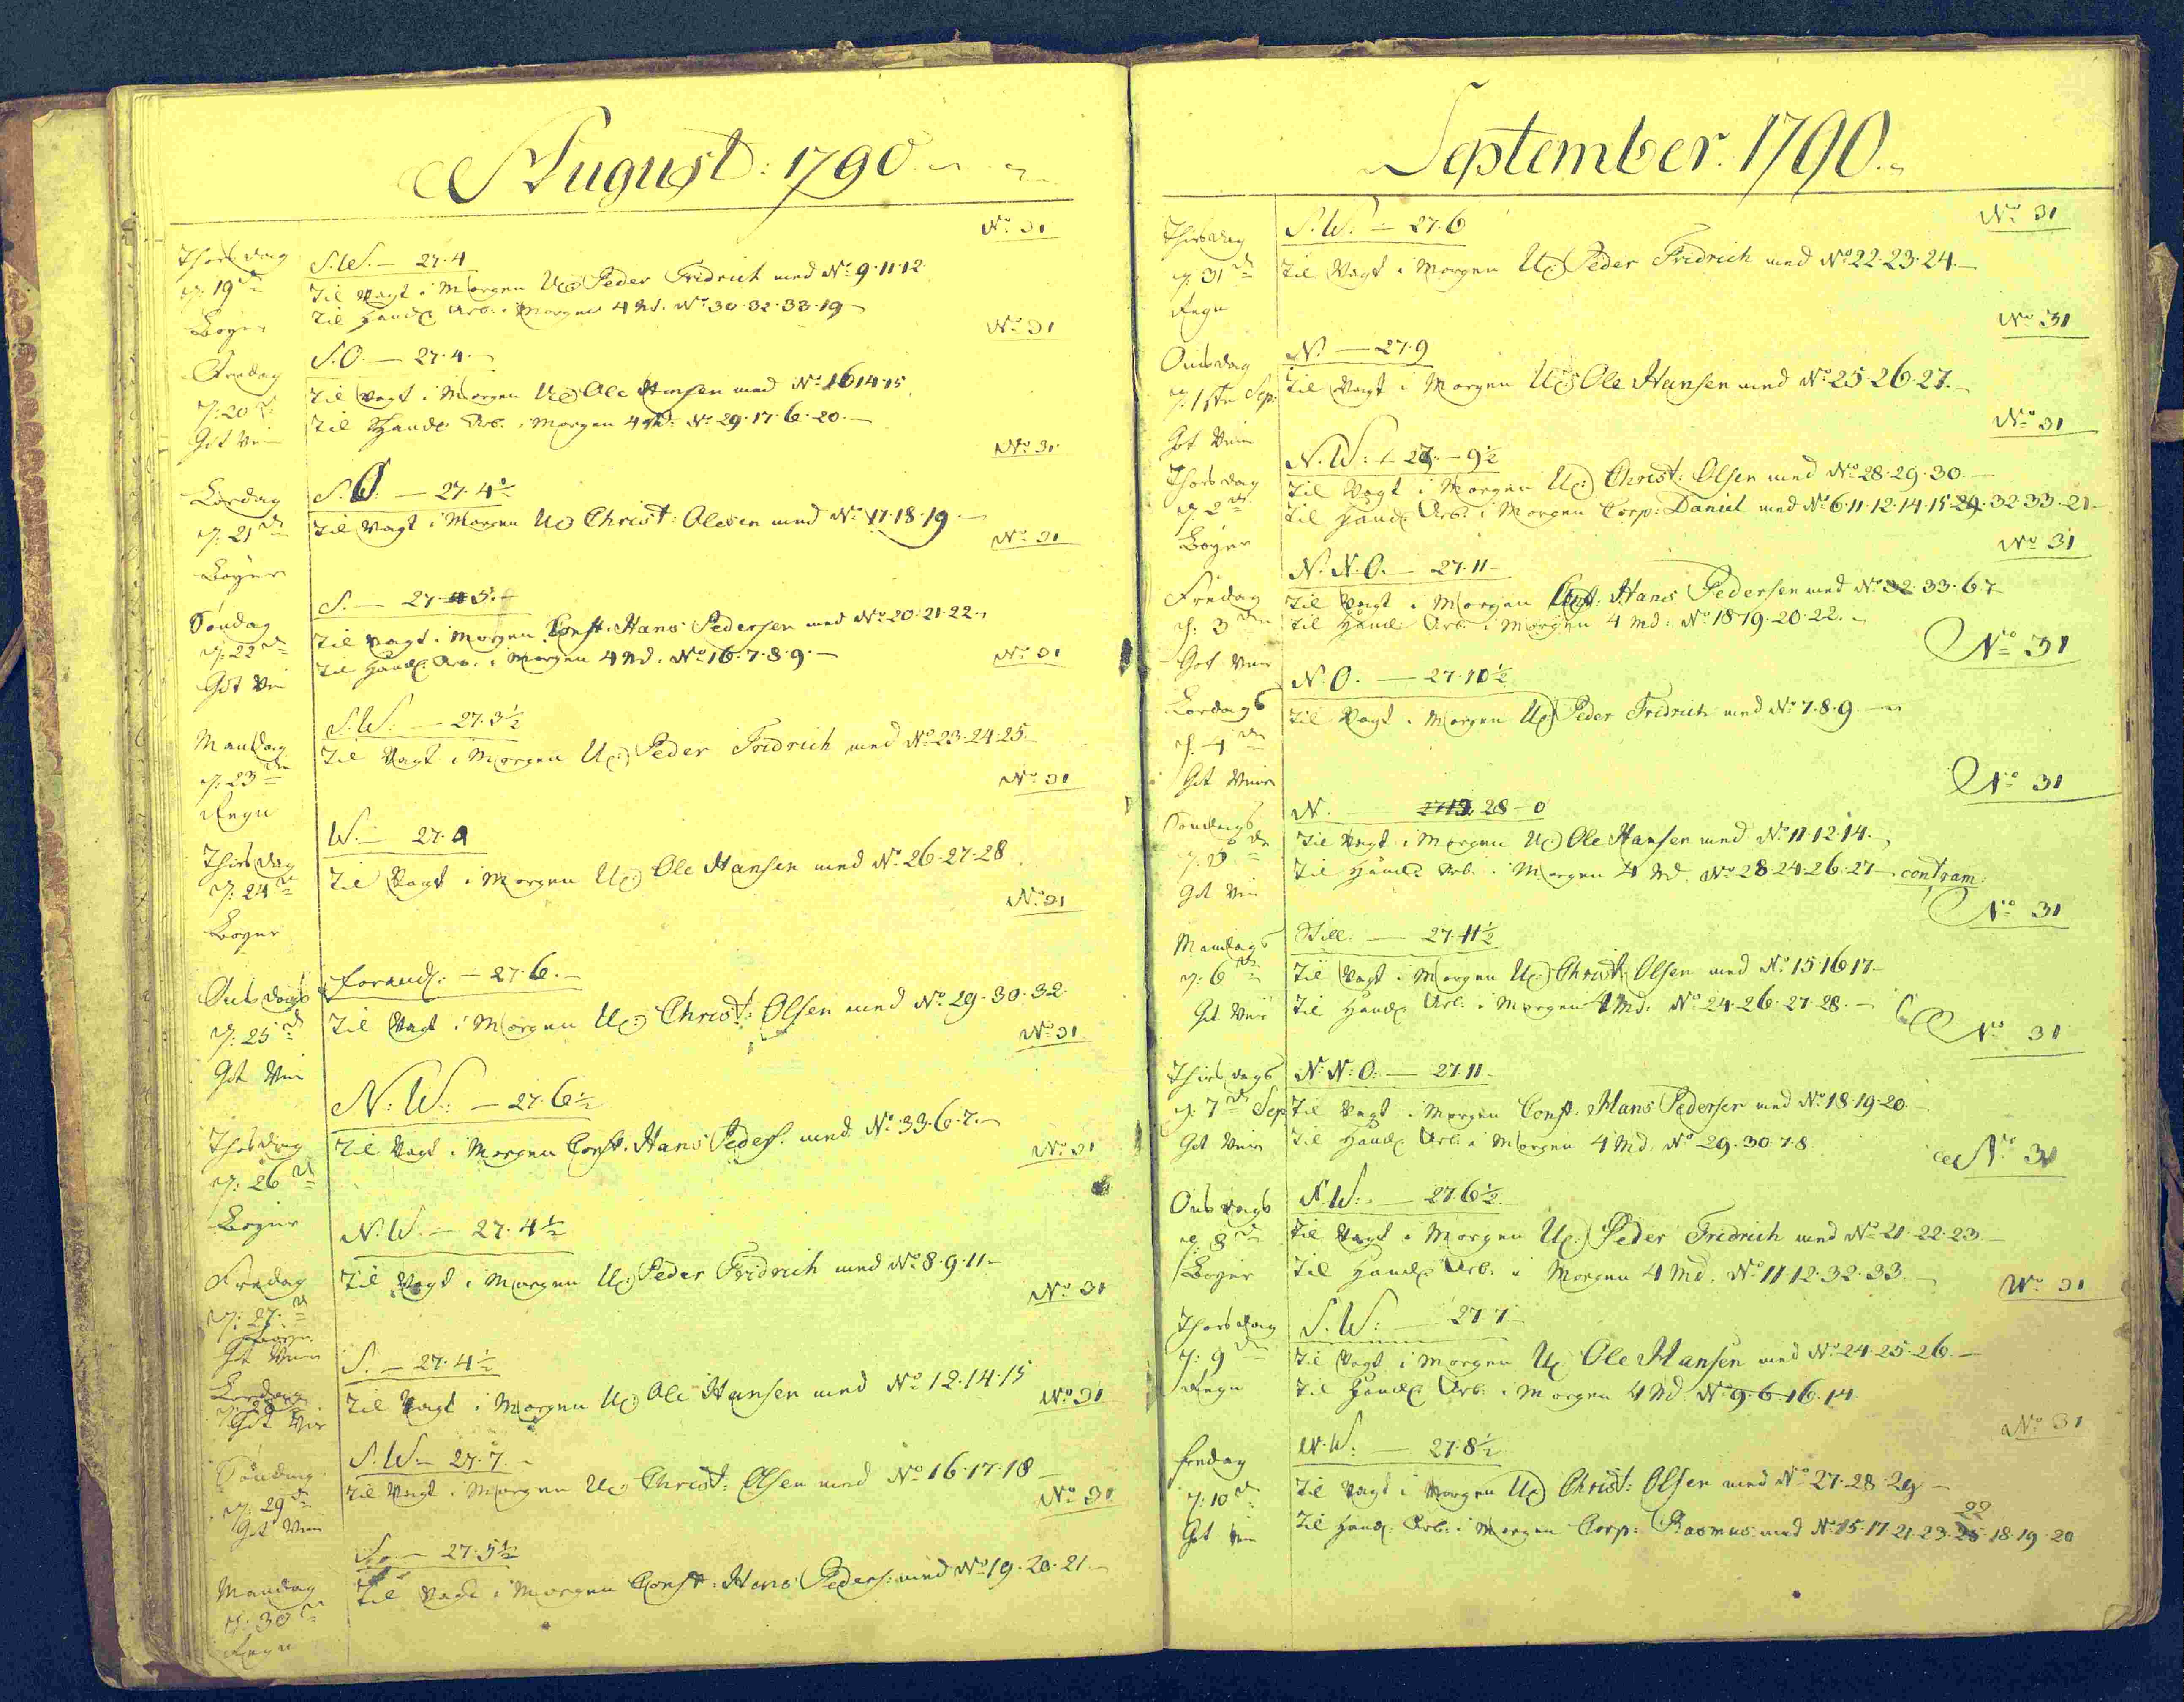 August: 1790.
No 31
Thorsdag
d: 19de
Bøyer
S.W. — 27.4
Til Vagt i Morgen Uc: Peder Fridrich med No 9.11.12.
Til Handl: Arb: i Morgen 4 Md. No 30.32.33.19
No 31
Fredag
d: 20de
Got Veir
S.O. — 27.4.
Til Vagt i Morgen Uc: Ole Hansen med No 16 14.15
Til Handl: Arb: i Morgen 4 Md: No 29.17.6.20.
No 31
Lørdag
d: 21de
Bøyer
S.O. — 27.4½
Til Vagt i Morgen Uc: Christ: Olesen med No 17.18.19
No 31
Søndag
d: 22de
Got Vei
S. — 27.5.
Til Vagt i Morgen Const. Hans Pedersen med No 20.21.22.
Til Handl: Arb: i Morgen 4 Md. No 16.7.8.9.
No 31
Mandag
d: 23de
Regn
S.W. — 27.3½
Til Vagt i Morgen Uc: Peder Fridrich med No 23.24.25.
No 31
Thirsdag
d: 24de
Bøyer
W. — 27.4
Til Vagt i Morgen Uc: Ole Hansen med No 26.27.28
No 31
Onsdags
d: 25de
Got Vei
forandl. — 27.6.
Til Vagt i Morgen Uc: Christ: Olsen med No 29.30.32.
No 31
Thorsdag
d: 26de
Bøyer
N:W: — 27.6½
Til Vagt i Morgen Const. Hans Peders: med No 33.6.7.
No 31
Fredag
d: 27de
Got Veir
N.W. — 27.4½
Til Vagt i Morgen Uc: Peder Fridrich med No 8.9.11
No 31
Lørdag
d: 28
Got Veir
S. — 27.4½
Til Vagt i Morgen Uc: Ole Hansen med No 12.14.15
No 31
Søndag
d: 29de
Got Veir
S.W. — 27.7.
Til Vagt i Morgen Uc: Christ: Olsen med No 16.17.18
No 31
Mandag
d: 30te
Regn
27.5½
Til Vagt i Morgen Const: Hans Peders: med No 19.20.21.
September. 1790.
No 31
Thirsdag
d: 31de
Regn
S.W. — 27.6
Til Vagt i Morgen Uc: Peder Fridrich med No 22.23.24.
No 31
Onsdag
d. 1ste Sep:
Got Veir
N. — 27.9
Til Vagt i Morgen Uc: Ole Hansen med No 25.26.27.
No 31
Thorsdag
d: 2de
Bøyer
N.W: — 27. — 9½
Til Vagt i Morgen Uc: Christ: Olsen med No 28.29.30.
Til Handl: Arb: i Morgen Corp: Daniel med No 6.11.12.14.15.29.32.33.21
No 31
Fredag
d: 3den
Got Veir
N.N.O. — 27.11
Til Vagt i Morgen Const: Hans Pedersen med No 32.33.6.7
Til Handl: Arb: i Morgen 4 Md: No 18.19.20.22.
No 31
Lørdags
d. 4de
Got Veir
N.O. — 27.10½
Til Vagt i Morgen Uc: Peder Fridrich med No 7.8.9.
No 31
Søndags
d. 5de
Got Vei
N. — 28 — 0
Til Vagt i Morgen Uc: Ole Hansen med No 11.12.14.
Til Handl: Arb: i Morgen 4 Md. No 28.24.26.27 contram:
No 31
Mandags
d: 6te
Got Veir
Still. — 27.11½
Til Vagt i Morgen Uc: Christ: Olsen med No 15.16.17
Til Handl: Arb: i Morgen 4 Md: No 24.26.27.28.
No 31
Thirsdags
d. 7de Sep
Got Veir
N:N:O: — 27.11
Til Vagt i Morgen Const. Hans Pedersen med No 18.19.20.
Til Handl: Arb: i Morgen 4 Md. No 29.30.7.8.
No 31
Onsdags
d. 8de
Bøyer
N.W: — 27.6½
Til Vagt i Morgen Uc: Peder Fridrich med No 21.22.23.
Til Handl: Arb: i Morgen 4 Md. No 11.12.32.33.
No 31
Thorsdag
d: 9de
Regn
S.W: 27.7
Til Vagt i Morgen Uc: Ole Hansen med No 24.25.26.
Til Handl: Arb: i Morgen 4 Md. No 9.6.16.14.
No 31
fredag
d: 10de
Got Vei
N.W: — 27.8½
Til Vagt i Morgen Uc: Christ: Olsen med No 27.28.29
22
Til Handl: Arb: i Morgen Corp: Rasmus med No 15.17.21.23.25.18.19.20